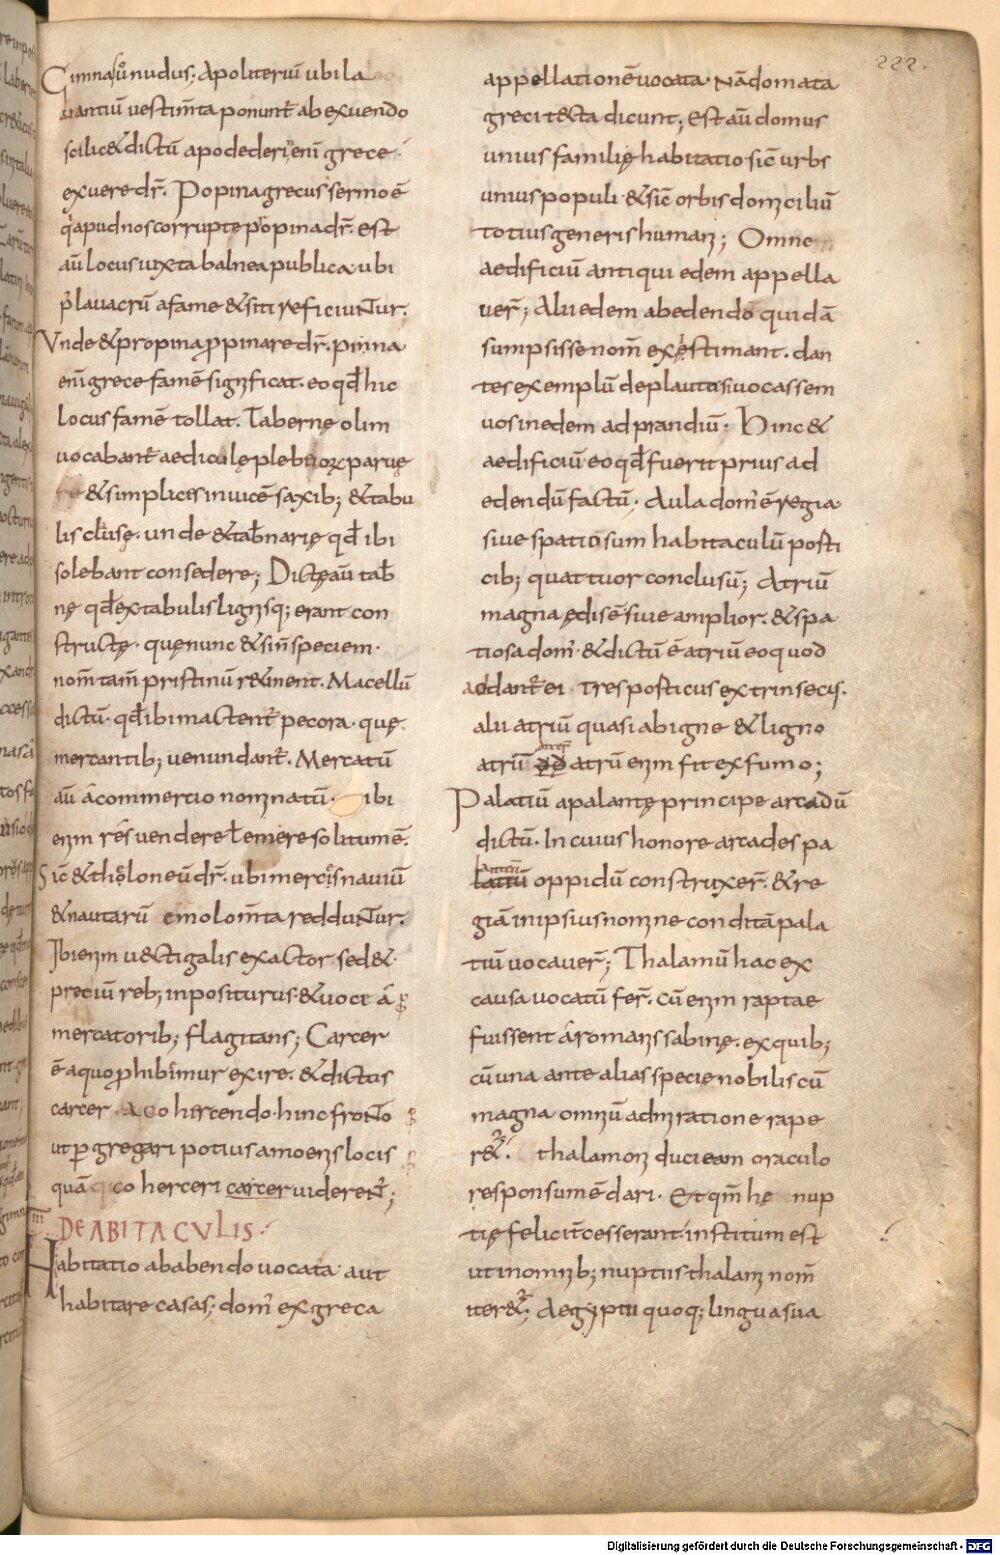 222.
Gimnasiū nudus; Apoliteriū ubi la
uantiū uestim̄ta ponunt̄ ab exuendo
scilic& dictū apodederi enī grece
exuere dr̄. Popina grecus sermo ē
q̇ apud nos corrupte propina dr̄. Est
aū locus iuxta balnea publica ubi
p̄ lauacrū a fame & siti reficiuntur.
Vnde & propina propinare dr̄. pinna
enī grece famē significat. eo qđ hic
locus famē tollat. Tabernę olim
uocabant̄ aediculę plebiorꝝ paruę
& simplices inuicē saxib; & tabu
lis clusę. unde & tab̄narię qđ ibi
solebant consedere; Dictę aū tab̄
nę qđ ex tabulis lignisq; erant con
structę. quę nunc & sin̄ speciem.
nom̄ tam̄ pristinū r&inent. Macellū
dictū. qđ ibi mactent̄ pecora. quę
mercantib; uenundant̄. Mercatū
aū a commercio nominatū. ibi
enim res uendere ł emere solitum ē.
Sic & theloneū dr̄. ubi mercis nauiū
& nautarū emolom̄ta redduntur.
Ibi enim uectigalis exactor sed&
preciū reb; inpositurus & uoce a
mercatorib; flagitans; Carcer
ē a quo prohibimur exire. & dictus
carcer a cohercendo. hinc fronto
ut pergregari potius amoenis locis
quā coherceri carcer uiderent̄;
III
DE ABITACULIS
Habitatio ab abendo uocata aut
habitare casas; dom̄ ex greca
appellationē uocata. Nā domata
greci t&cta dicunt; Est aū domus
unius familię habitatio sic urbs
unius populi. & sic orbis domiciliū
totius generis humani; Omne
aedificiū antiqui edem appella
uer̄; Alii edem ab edendo quidā
sumpsisse nom̄ existimant. dan
tes exemplū de plauto si uocassem
uos in edem ad prandiū. Hinc &
aedificiū eo qđ fuerit prius ad
edendū factū. Aula dom̄ ē regia
siue spatiosum habitaculū posti
cib; quattuor conclusū; Atriū
magna ędis ē siue amplior. & spa
tiosa dom̄. & dictū ē atriū eo quod
addant̄ ei tres posticus extrinsecis.
alii atriū quasi ab igne & ligno
atrū atrū enim fit ex fumo;
Palatiū a palantę principe arcadū
dictū. In cuius honore arcades pa
lantiū oppidū construxer̄. & re
giā in ipsius nomine conditā pala
tiū uocauer̄; Thalamū hac ex
causa uocatū fer̄. cū enim raptae
fuissent a romanis sabinę. ex quib;
cū una ante alias specię nobilis cū
magna omniū admiratione rape
r&. thalamon duci eam oraculo
responsum ē dari. Et qm̄ hę nup
tię feliciter cesserant institum est
ut in omnib; nuptiis thalami nom̄
iter&; Aegyptii quoq; lingua sua